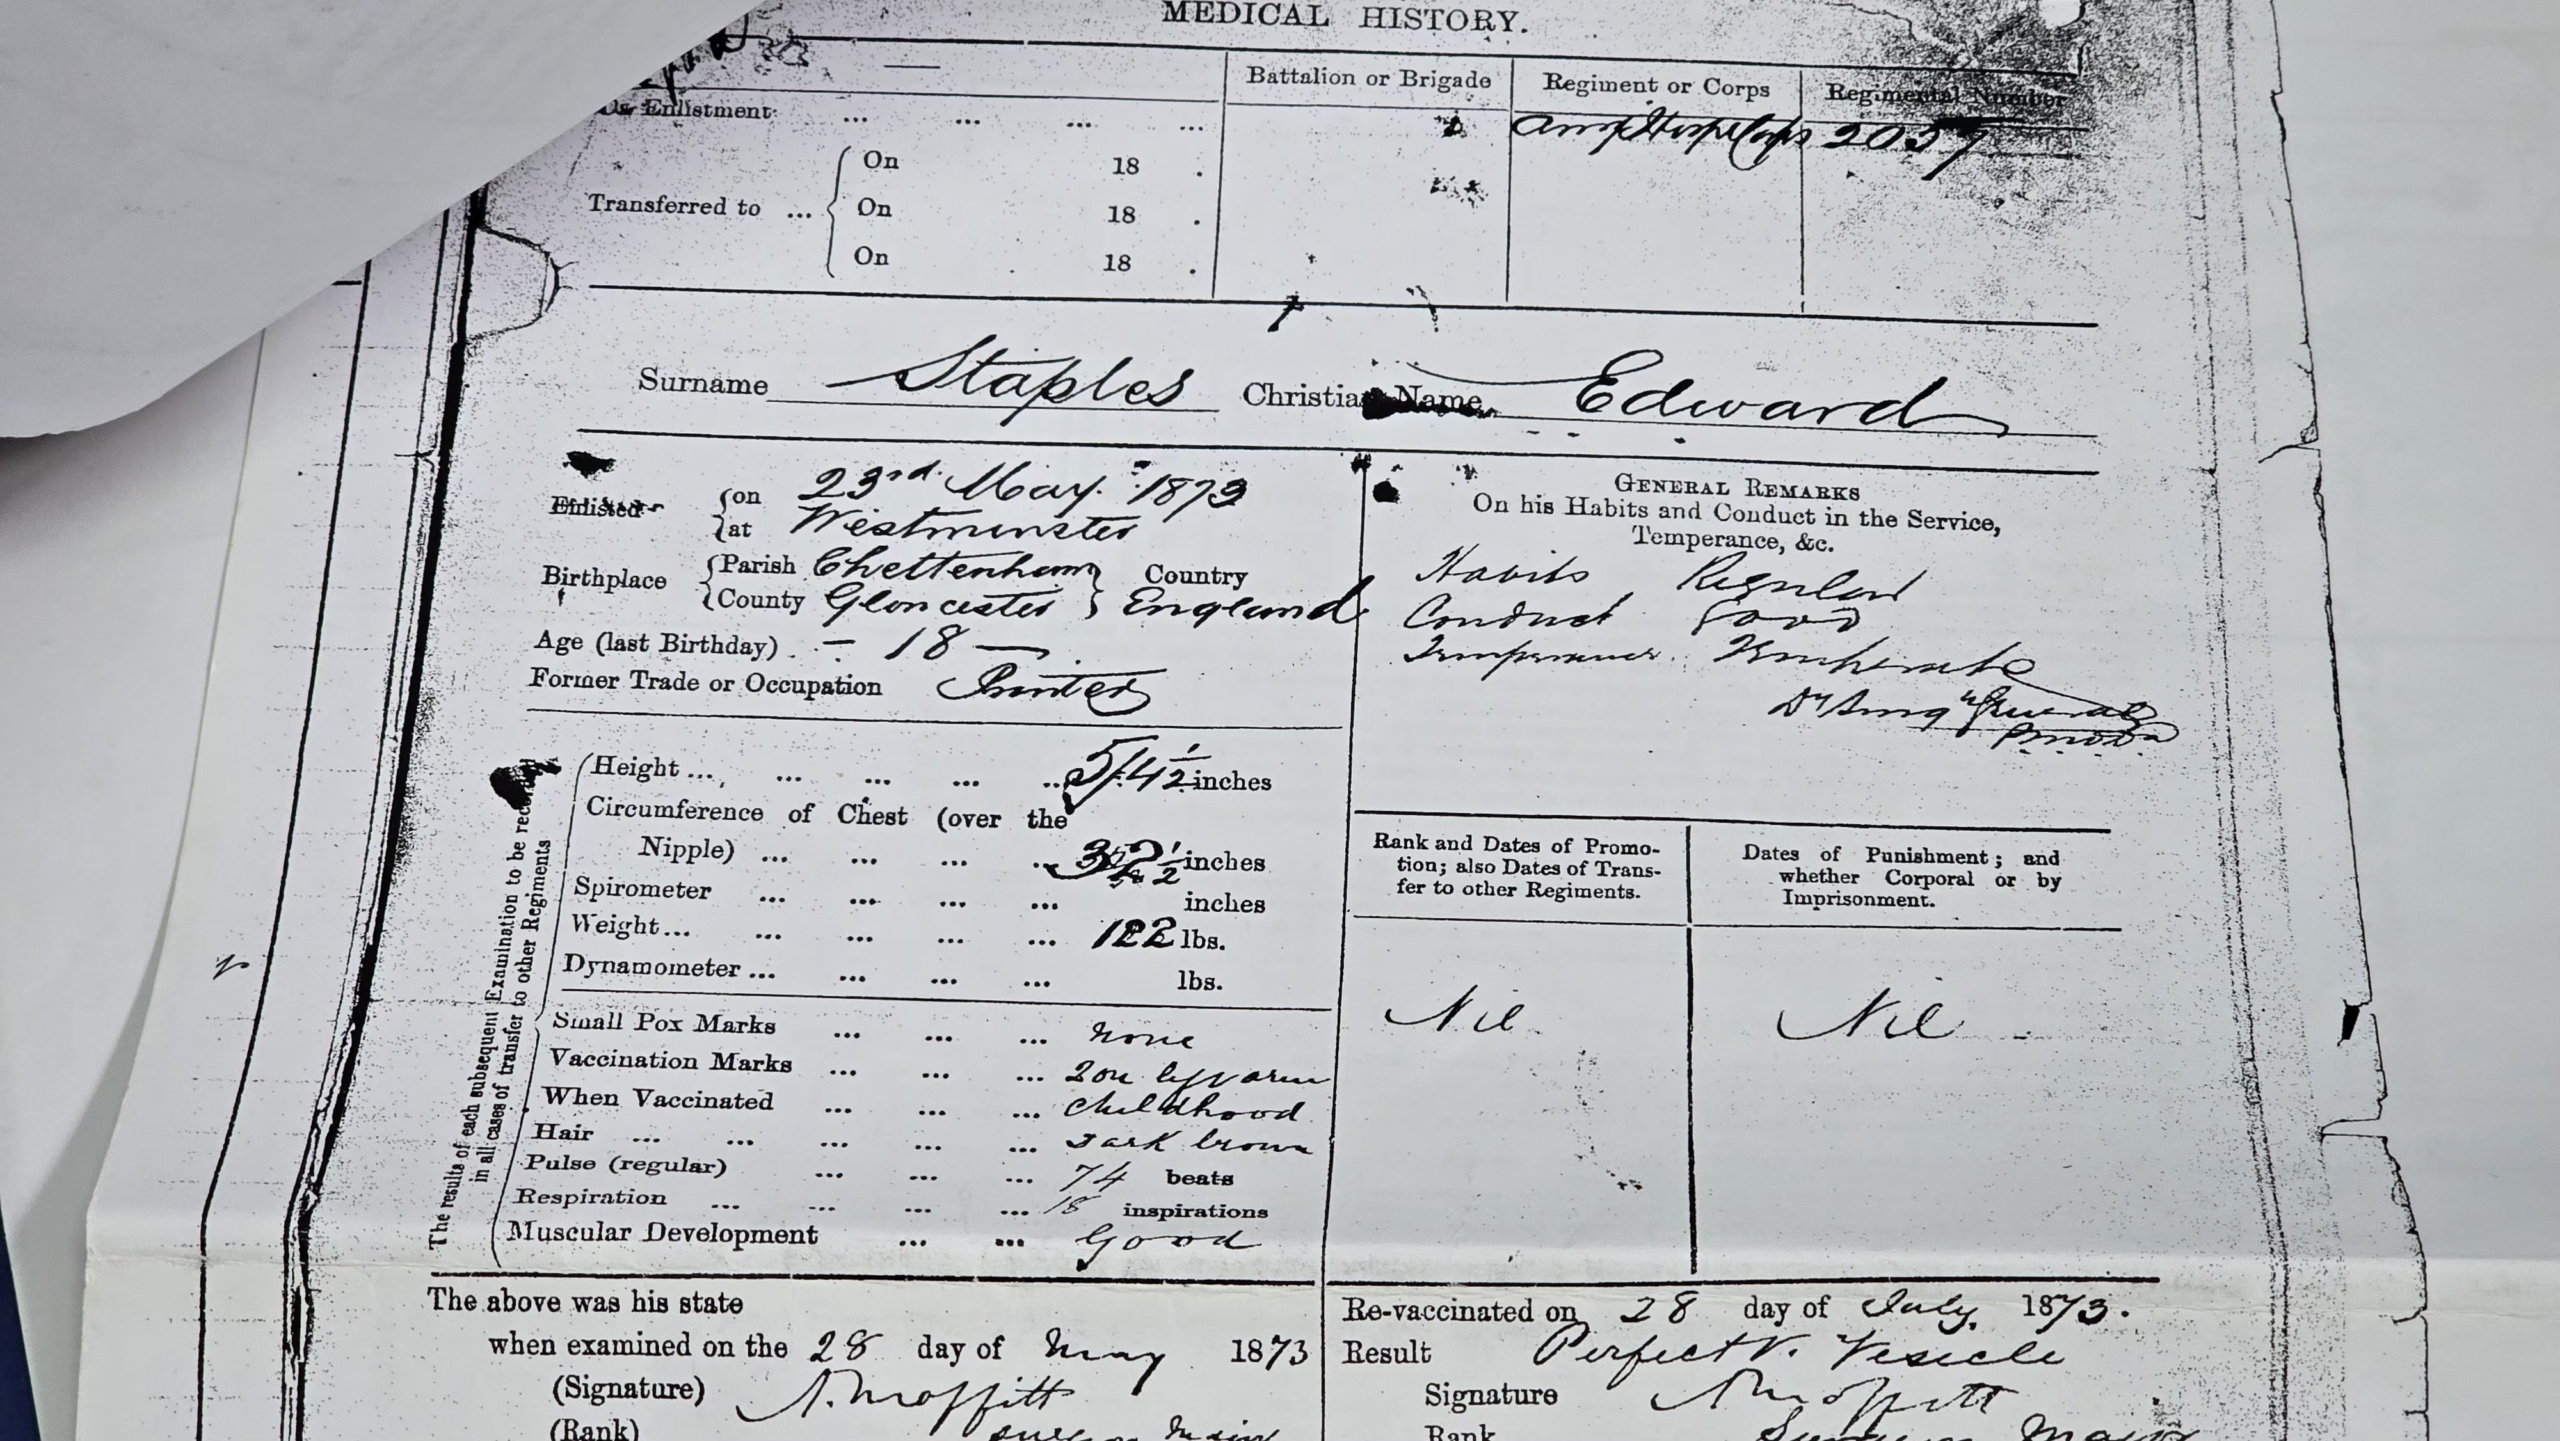 MEDICAL HISTORY.
Battalion or Brigade Regiment or Corps Regimental Number
Enlistment ... ... ... ... 2037
Transferred to ... On 18 .
On 18 .
On 18 .
Surname Staples Christian Name Edward
Enlisted on 23rd May. 1873
at Westminster
Birthplace Parish Cheltenham Country
County Gloucester England
Age (last Birthday) . - 18 -
Former Trade or Occupation Printer
GENERAL REMARKS
On his Habits and Conduct in the Service,
Temperance, &c.
Habits Regular
Conduct Good
Temperance. Temperate
The results of each subsequent Examination to be
in all cases of transfer to other Regiments
Height ... ... ... ... ... 5/4 1/2 inches
Circumference of Chest (over the
Nipple) ... ... ... ... 32 1/2 inches
Spirometer ... ... ... ... inches
Weight ... ... ... ... 122 lbs.
Dynamometer ... ... ... ... lbs.
Small Pox Marks ... ... ... none
Vaccination Marks ... ... ... 2 on left arm
When Vaccinated ... ... ... childhood
Hair ... ... ... ... ... dark brown
Pulse (regular) ... ... ... 74 beats
Respiration ... ... ... ... 18 inspirations
Muscular Development ... ... Good
Rank and Dates of Promo-
tion; also Dates of Trans-
fer to other Regiments.
Nil
Dates of Punishment; and
whether Corporal or by
Imprisonment.
Nil
The above was his state
when examined on the 28 day of May 1873
(Signature) A. Moffitt
(Rank) Surgeon Major
Re-vaccinated on 28 day of July, 1873.
Result Perfect V. Vesicle
Signature A Moffitt
Rank Surgeon Major